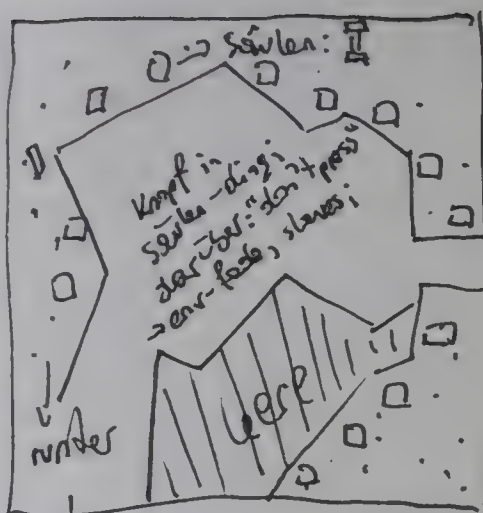 => Säulen:
Knopf in
Säulen-dingi
darüber: "don't press"
-> env-fade, slaves;
leere
runter